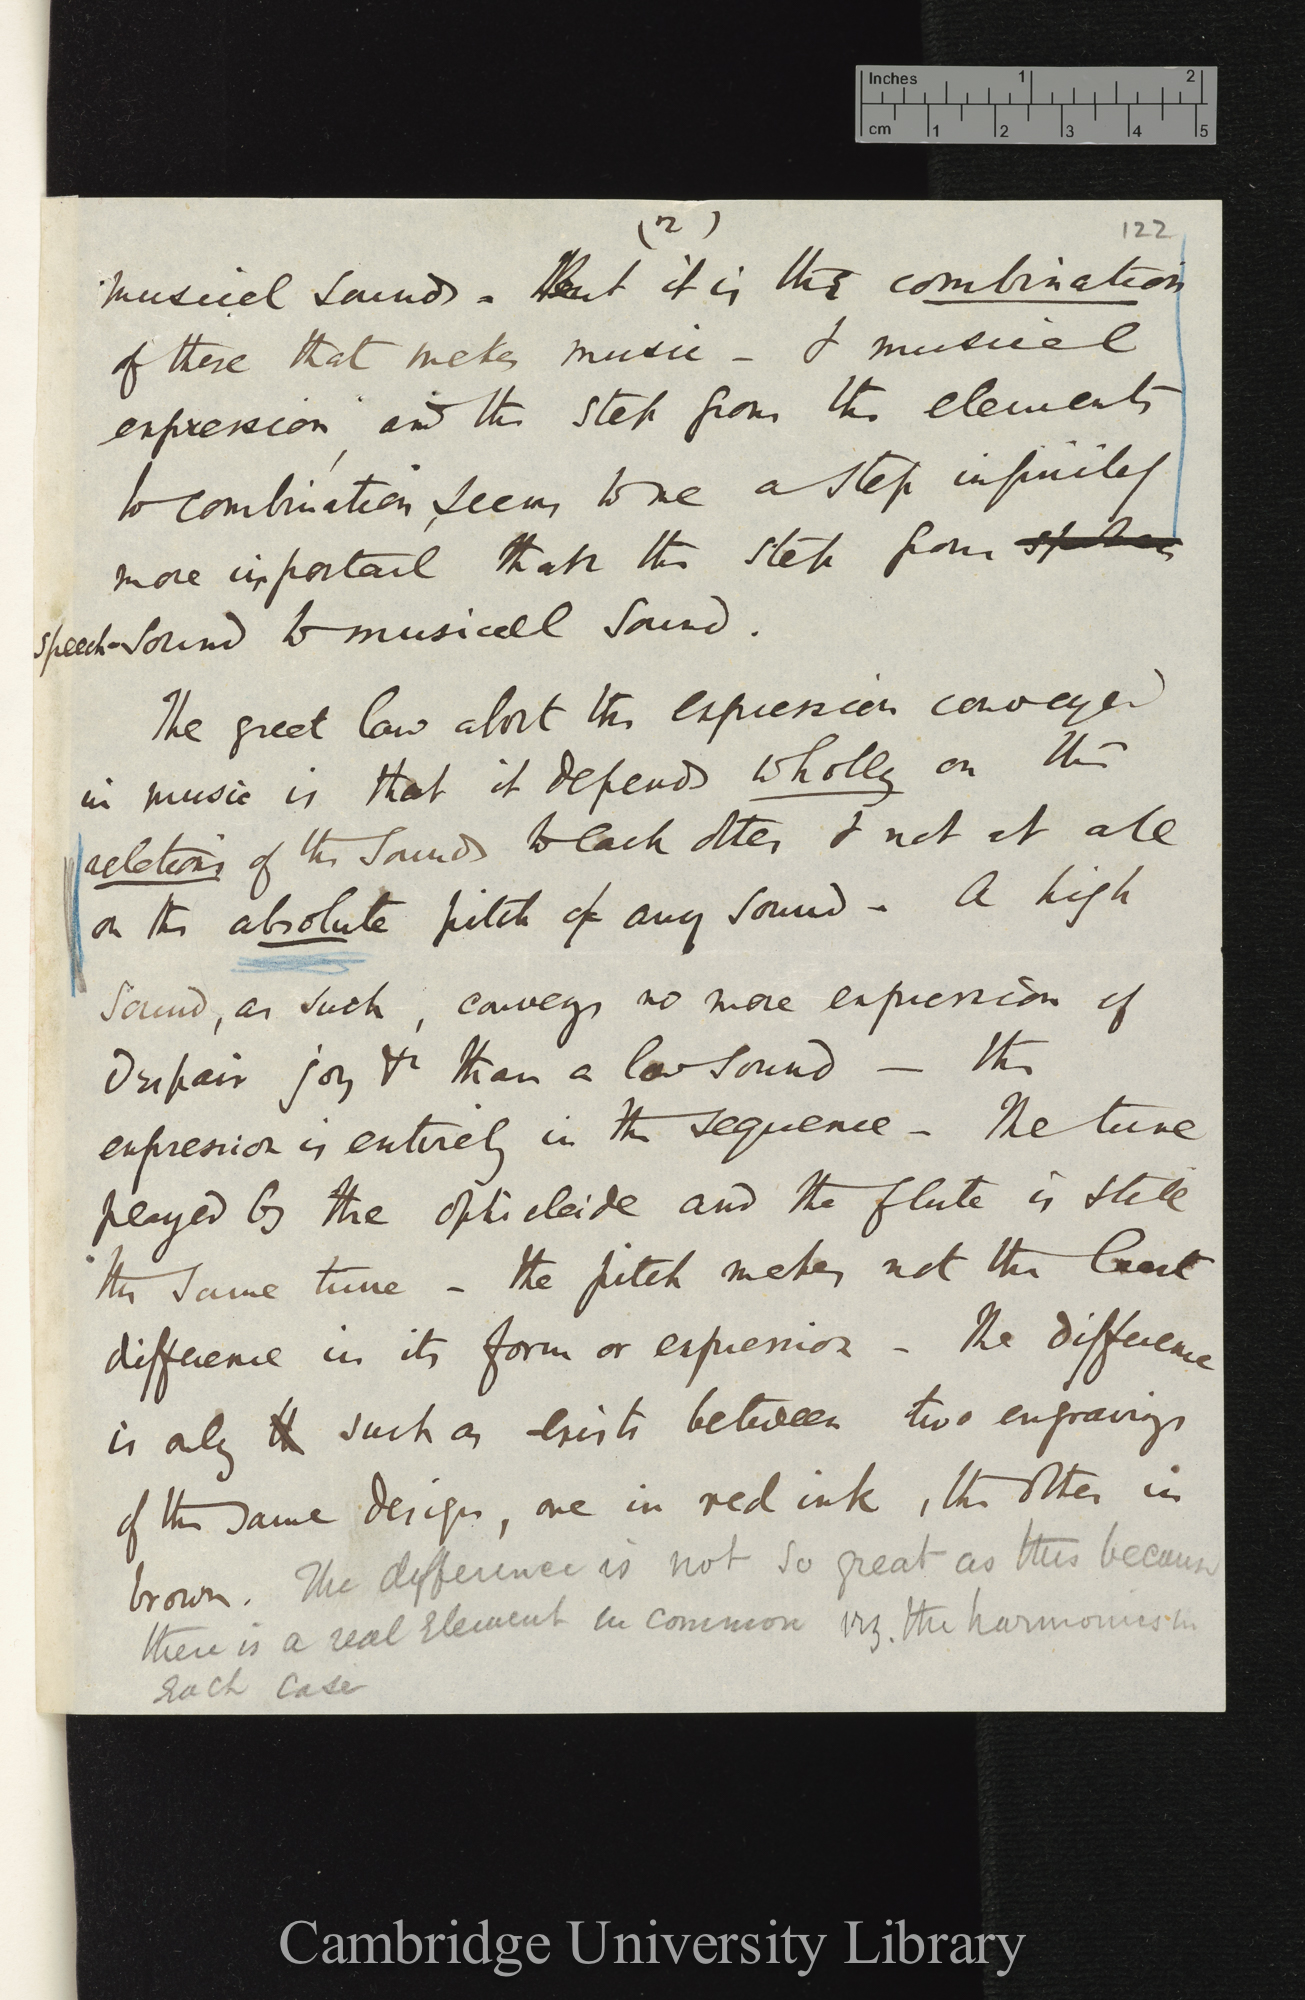 Inches 1 2
cm 1 2 3 4 5
(2)
122
musical sounds - But it is the combination
of these that makes music - & musical
expression, and the step from the elements
to combination, seems to me a step infinitely
more important than the step from spoken
speech-sound to musical sound.
The great law abort the expression conveyed
in music is that it depends wholly on the
relations of the sounds to each other & not at all
on the absolute pitch of any sound - A high
sound, as such, conveys no more expression of
despair joy &c than a low sound — the
expression is entirely in the sequence - The tune
played by the ophicleide and the flute is still
the same tune - the pitch makes not the least
difference in its form or expression - The difference
is only such as exists between two engravings
of the same design, one in red ink, the other in
brown. The difference is not so great as this because
there is a real element in common viz. the harmonics in
each case
Cambridge University Library